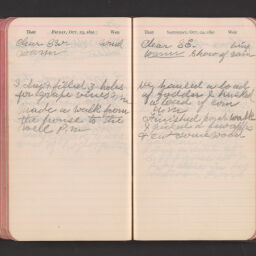 Ther. FRIDAY, OCT. 23, 189 Wea.
Clear S.W. wind
warm
I dug & filled 3 holes
for grape vines a.m
made a walk from
the house to the
well P.m
Ther. SATURDAY, OCT. 24, 189 Wea.
Clear S.E.
warm show of rain
We hauled a load
of fodder & husked
a load of corn
finished walk
& picked a few apples
& cut some wood